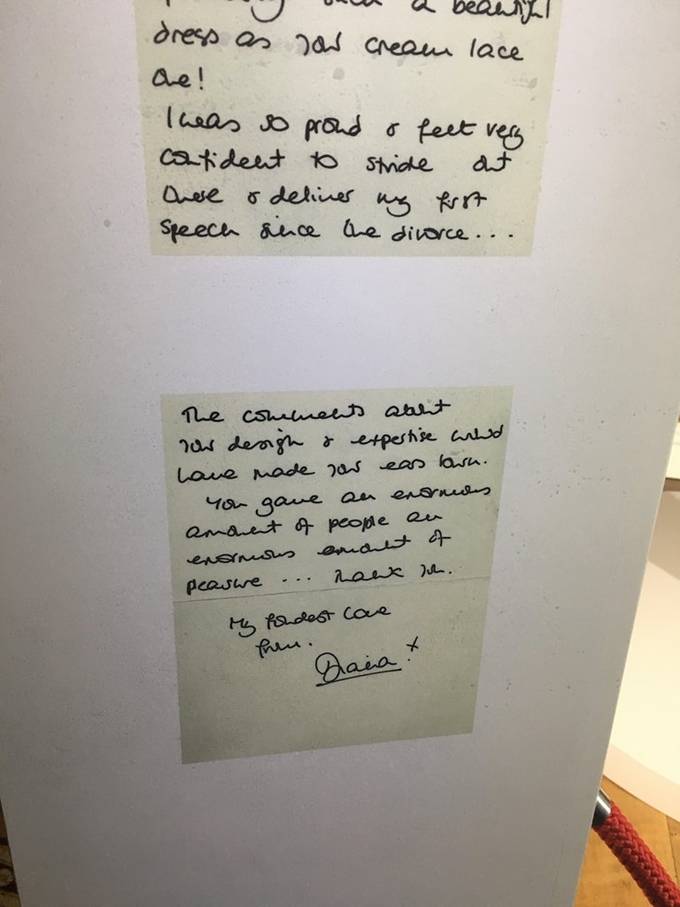 such a beautiful
dress as your cream lace
one!
I was so proud & felt very
confident to stride out
there & deliver my first
speech since the divorce...
The comments about
your design & expertise would
have made your ears burn.
You gave an enormous
amount of people an
enormous amount of
peasure ... Thank you.
My fondest love
from.
Diana. x